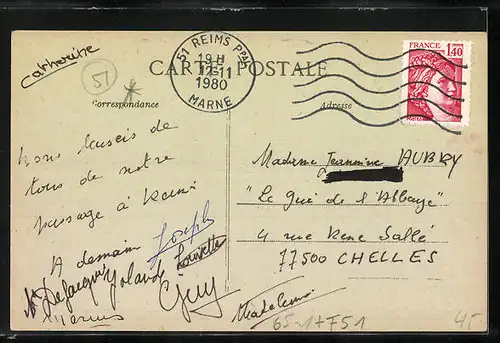 Catherine
51
51 REIMS PPAL
19 H
12-11
1980
MARNE
FRANCE
1,40
CARTE POSTALE
Correspondance
Adresse
Bons baisers de
tous de notre
passage à Reims
A demain
Joseph
Yolande
Guy
Madame Jeannine AUBRY
"Le gué de l'Abbaye"
4 rue René Sallé
77500 CHELLES
Madeleine